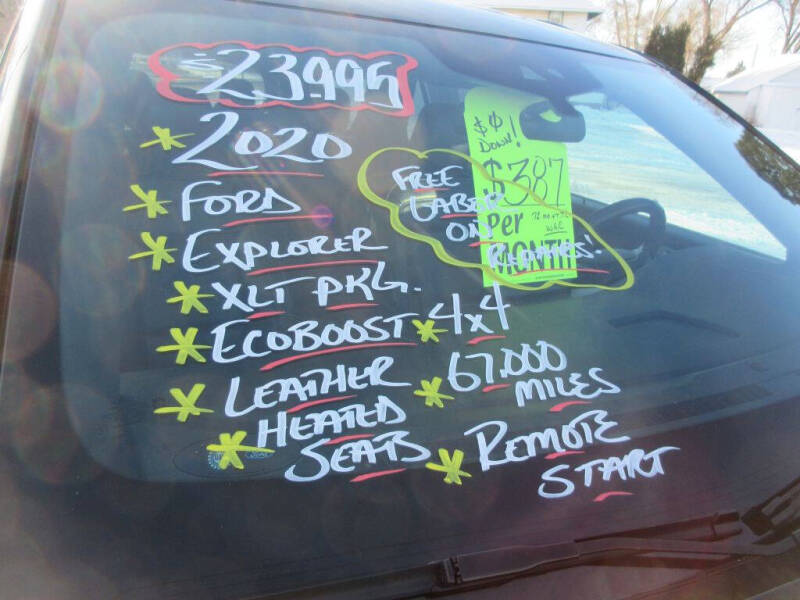 $23,995
2020
FORD
EXPLORER
XLT PKG.
ECOBOOST 4x4
LEATHER
HEATED
SEATS
67,000
MILES
REMOTE
START
FREE
LABER
ON
REPAIRS!
$0
DOWN!
$387
Per
MONTH